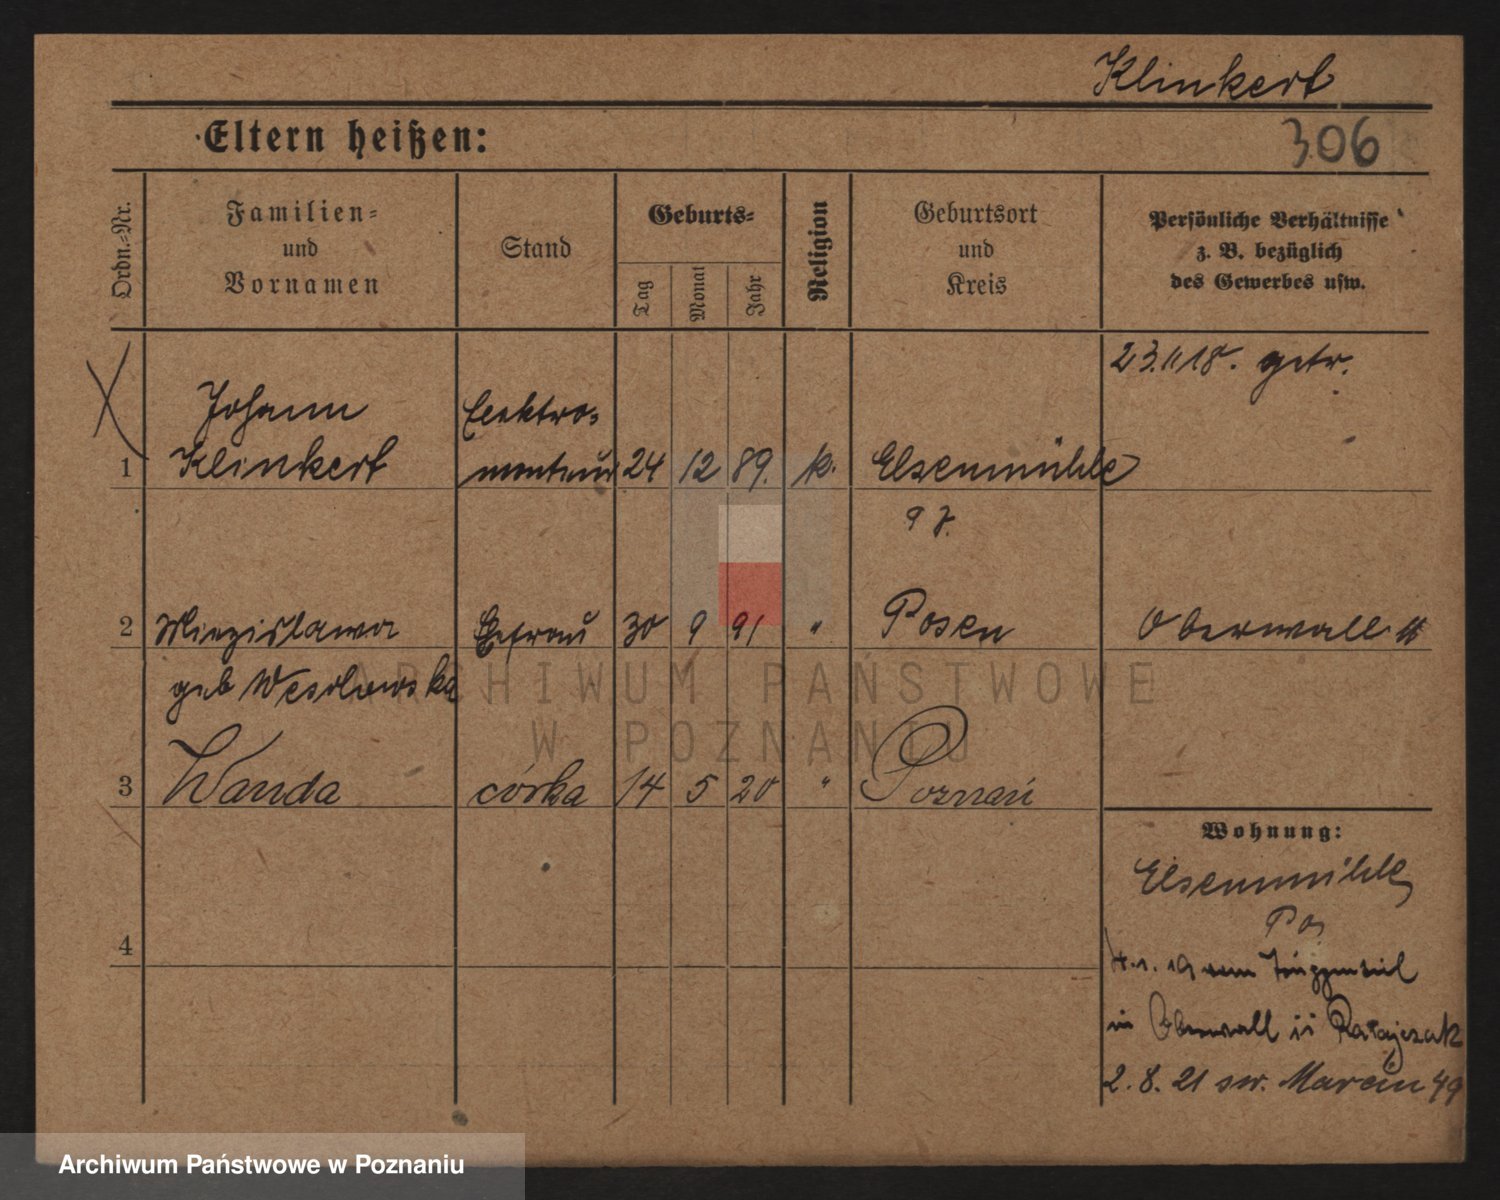 Klinkert
306
Eltern heißen:
Ordn.=Nr.
Familien=
und
Vornamen
Stand
Geburts=
Tag
Monat
Jahr
Religion
Geburtsort
und
Kreis
Persönliche Verhältnisse
z. B. bezüglich
des Gewerbes usw.
23. 11 18. getr.
Johann Elektro=
1 Klinkert monteur 24 12 89. k. Elsenmühle
2 Miezislawa Ehefrau 30 9 91 " Posen Oberwall 11
geb Wesolowska
3 Wanda córka 14 5 20 " Poznań
Wohnung:
Elsenmühle
Pos
4
4. 1. 19 vom
in Oberwall 11 Ratajczak
2. 8. 21 sw. Marcin 49
ARCHIWUM PAŃSTWOWE
W POZNANIU
Archiwum Państwowe w Poznaniu